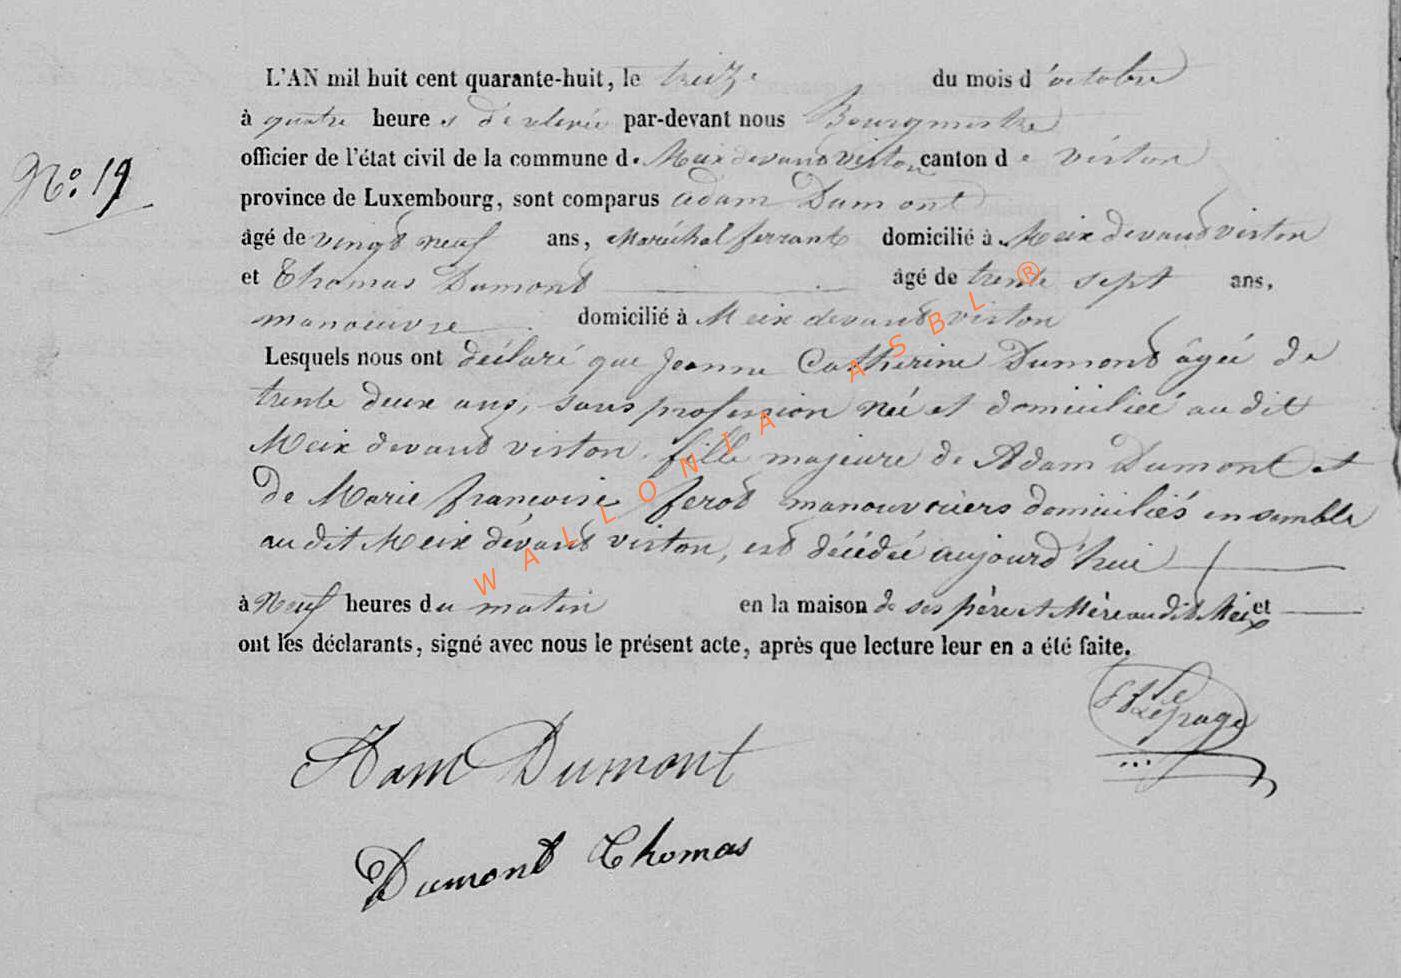 L'AN mil huit cent quarante-huit, le treize du mois d'octobre
à quatre heures de relevée par-devant nous Bourgmestre
officier de l'état civil de la commune de Meix devand virton canton de virton
N.o 19
province de Luxembourg, sont comparus adam Dumont
âgé de vingt neuf ans, Maréchal ferrant domicilié à Meix devand virton
et Thomas Dumont âgé de trente sept ans,
manoeuvre domicilié à Meix devand virton
Lesquels nous ont déclaré que Jeanne Catherine Dumont âgée de
trente deux ans, sans profession née et domiciliée au dit
Meix devand virton. fille majeure de Adam Dumont et
de Marie françoise ferot manouvriers domiciliés ensemble
au dit Meix dévand virton, est décédée aujourd'hui
à Neuf heures du matin en la maison de ses père et Mère au dit Meix et
ont les déclarants, signé avec nous le présent acte, après que lecture leur en a été faite.
Lepage
Adam Dumont
Dumont Thomas
WALLONIA ASBL ®